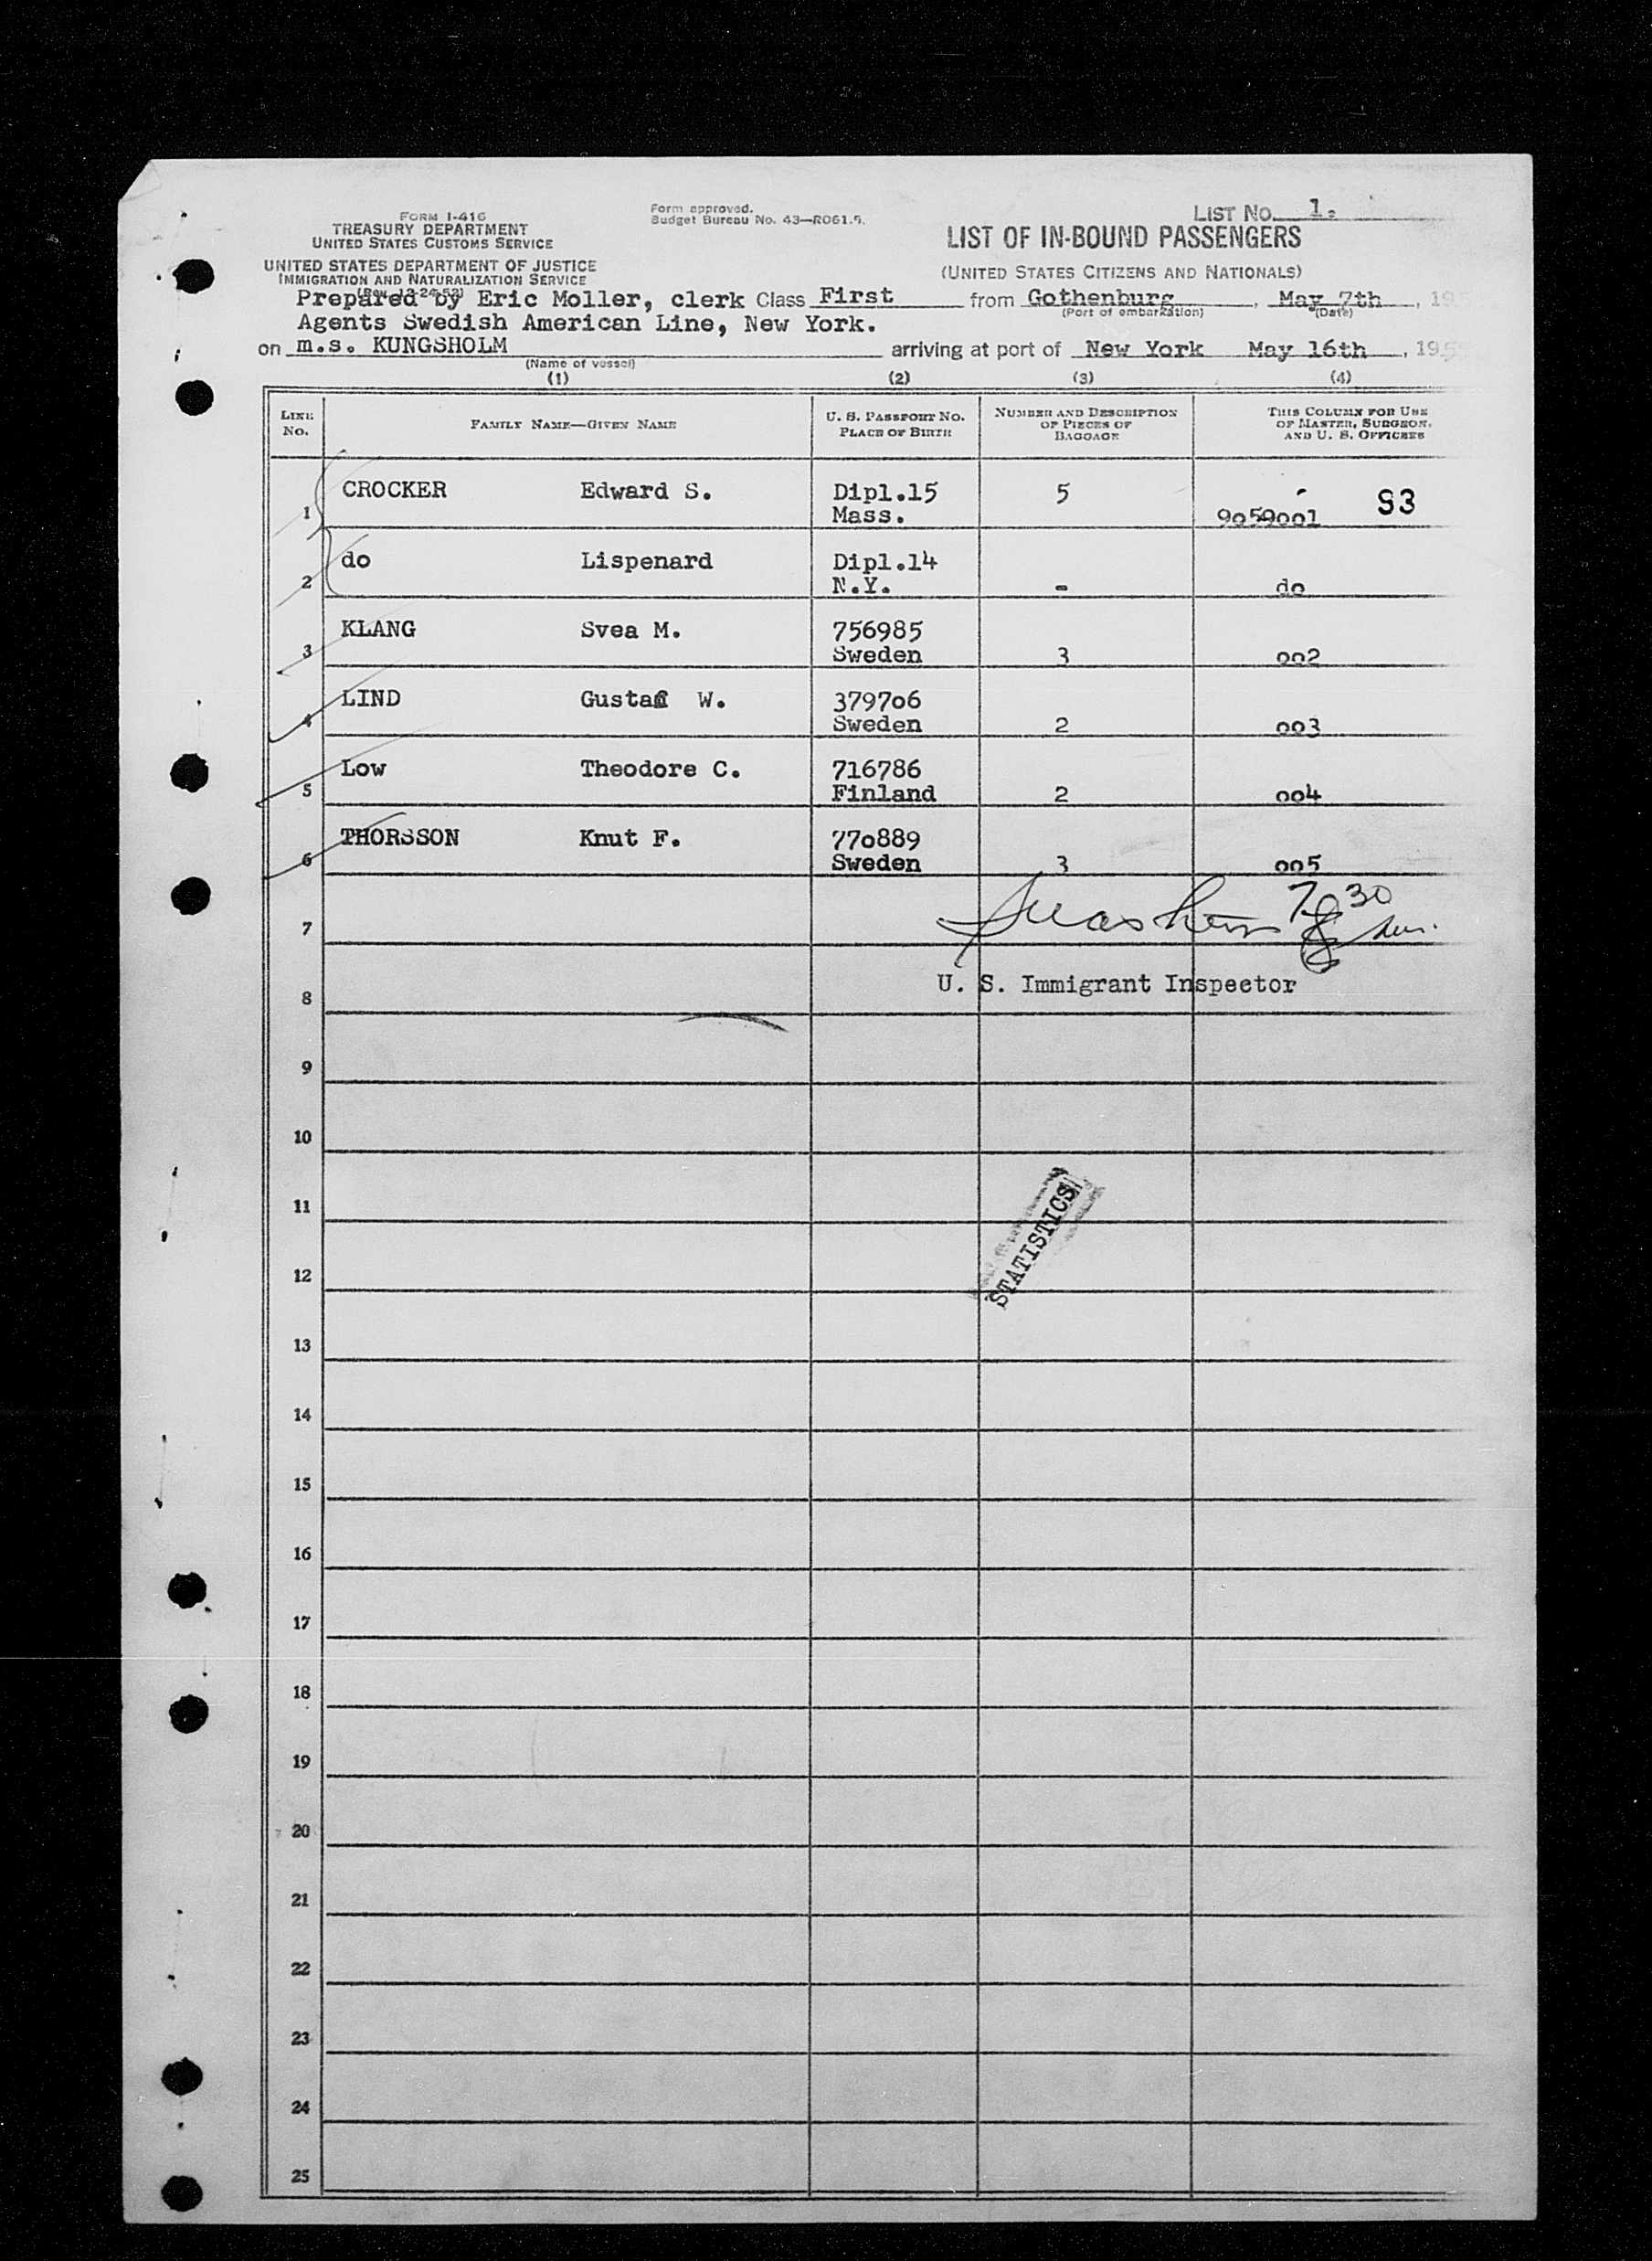 FORM I-416
TREASURY DEPARTMENT
UNITED STATES CUSTOMS SERVICE
UNITED STATES DEPARTMENT OF JUSTICE
IMMIGRATION AND NATURALIZATION SERVICE
(Rev. 12-24-52)
Form approved.
Budget Bureau No. 43—R061.5.
LIST No. 1.
LIST OF IN-BOUND PASSENGERS
(UNITED STATES CITIZENS AND NATIONALS)
Prepared by Eric Moller, clerk Class First from Gothenburg, May 7th, 19
(Port of embarkation) (Date)
Agents Swedish American Line, New York.
on m.s. KUNGSHOLM arriving at port of New York May 16th, 195
(Name of vessel)
(1) (2) (3) (4)
LINE No. FAMILY NAME—GIVEN NAME U. S. PASSPORT NO. PLACE OF BIRTH NUMBER AND DESCRIPTION OF PIECES OF BAGGAGE THIS COLUMN FOR USE OF MASTER, SURGEON, AND U. S. OFFICERS
1 CROCKER Edward S. Dipl.15 Mass. 5 9059001 S3
2 do Lispenard Dipl.14 N.Y. - do
3 KLANG Svea M. 756985 Sweden 3 002
4 LIND Gustaf W. 379706 Sweden 2 003
5 Low Theodore C. 716786 Finland 2 004
6 THORSSON Knut F. 770889 Sweden 3 005
7 7 30
8 U. S. Immigrant Inspector
9
10
11
STATISTICS
12
13
14
15
16
17
18
19
20
21
22
23
24
25